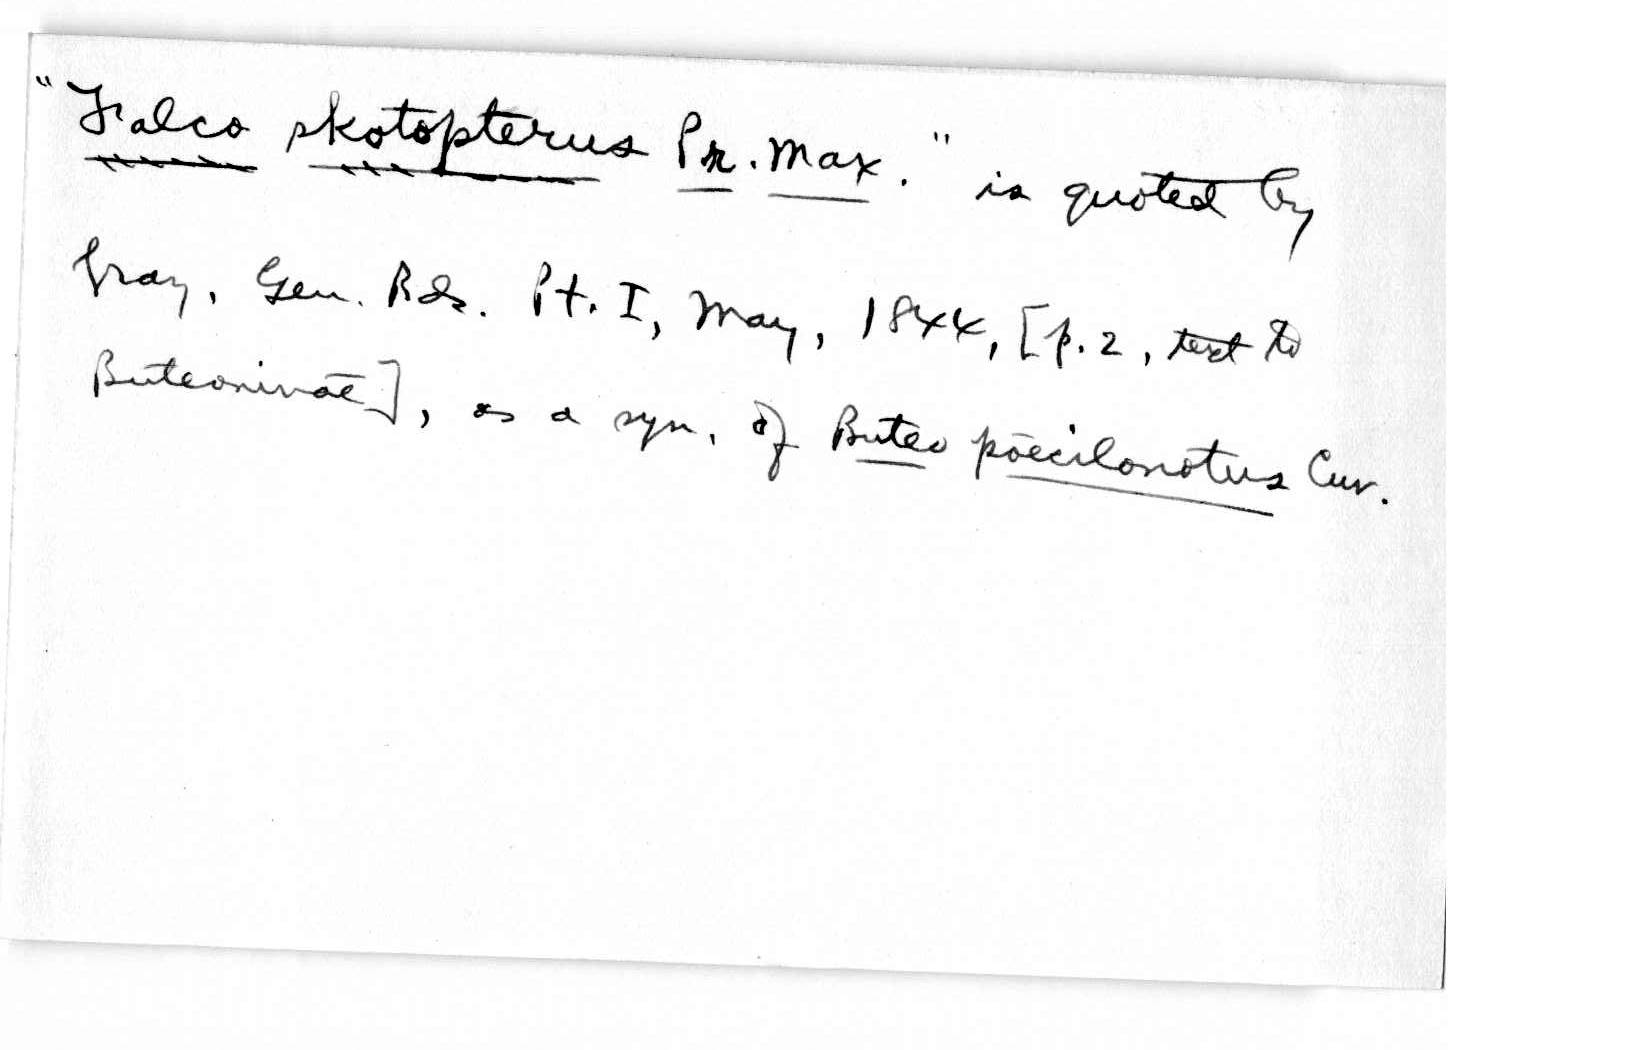 "Falco skotopterus Pr. Max." is quoted by
Gray, Gen. Bds. Pt. I, May, 1844, [p. 2, text to
Buteoninae], as a syn. of Buteo poecilonotus Cuv.